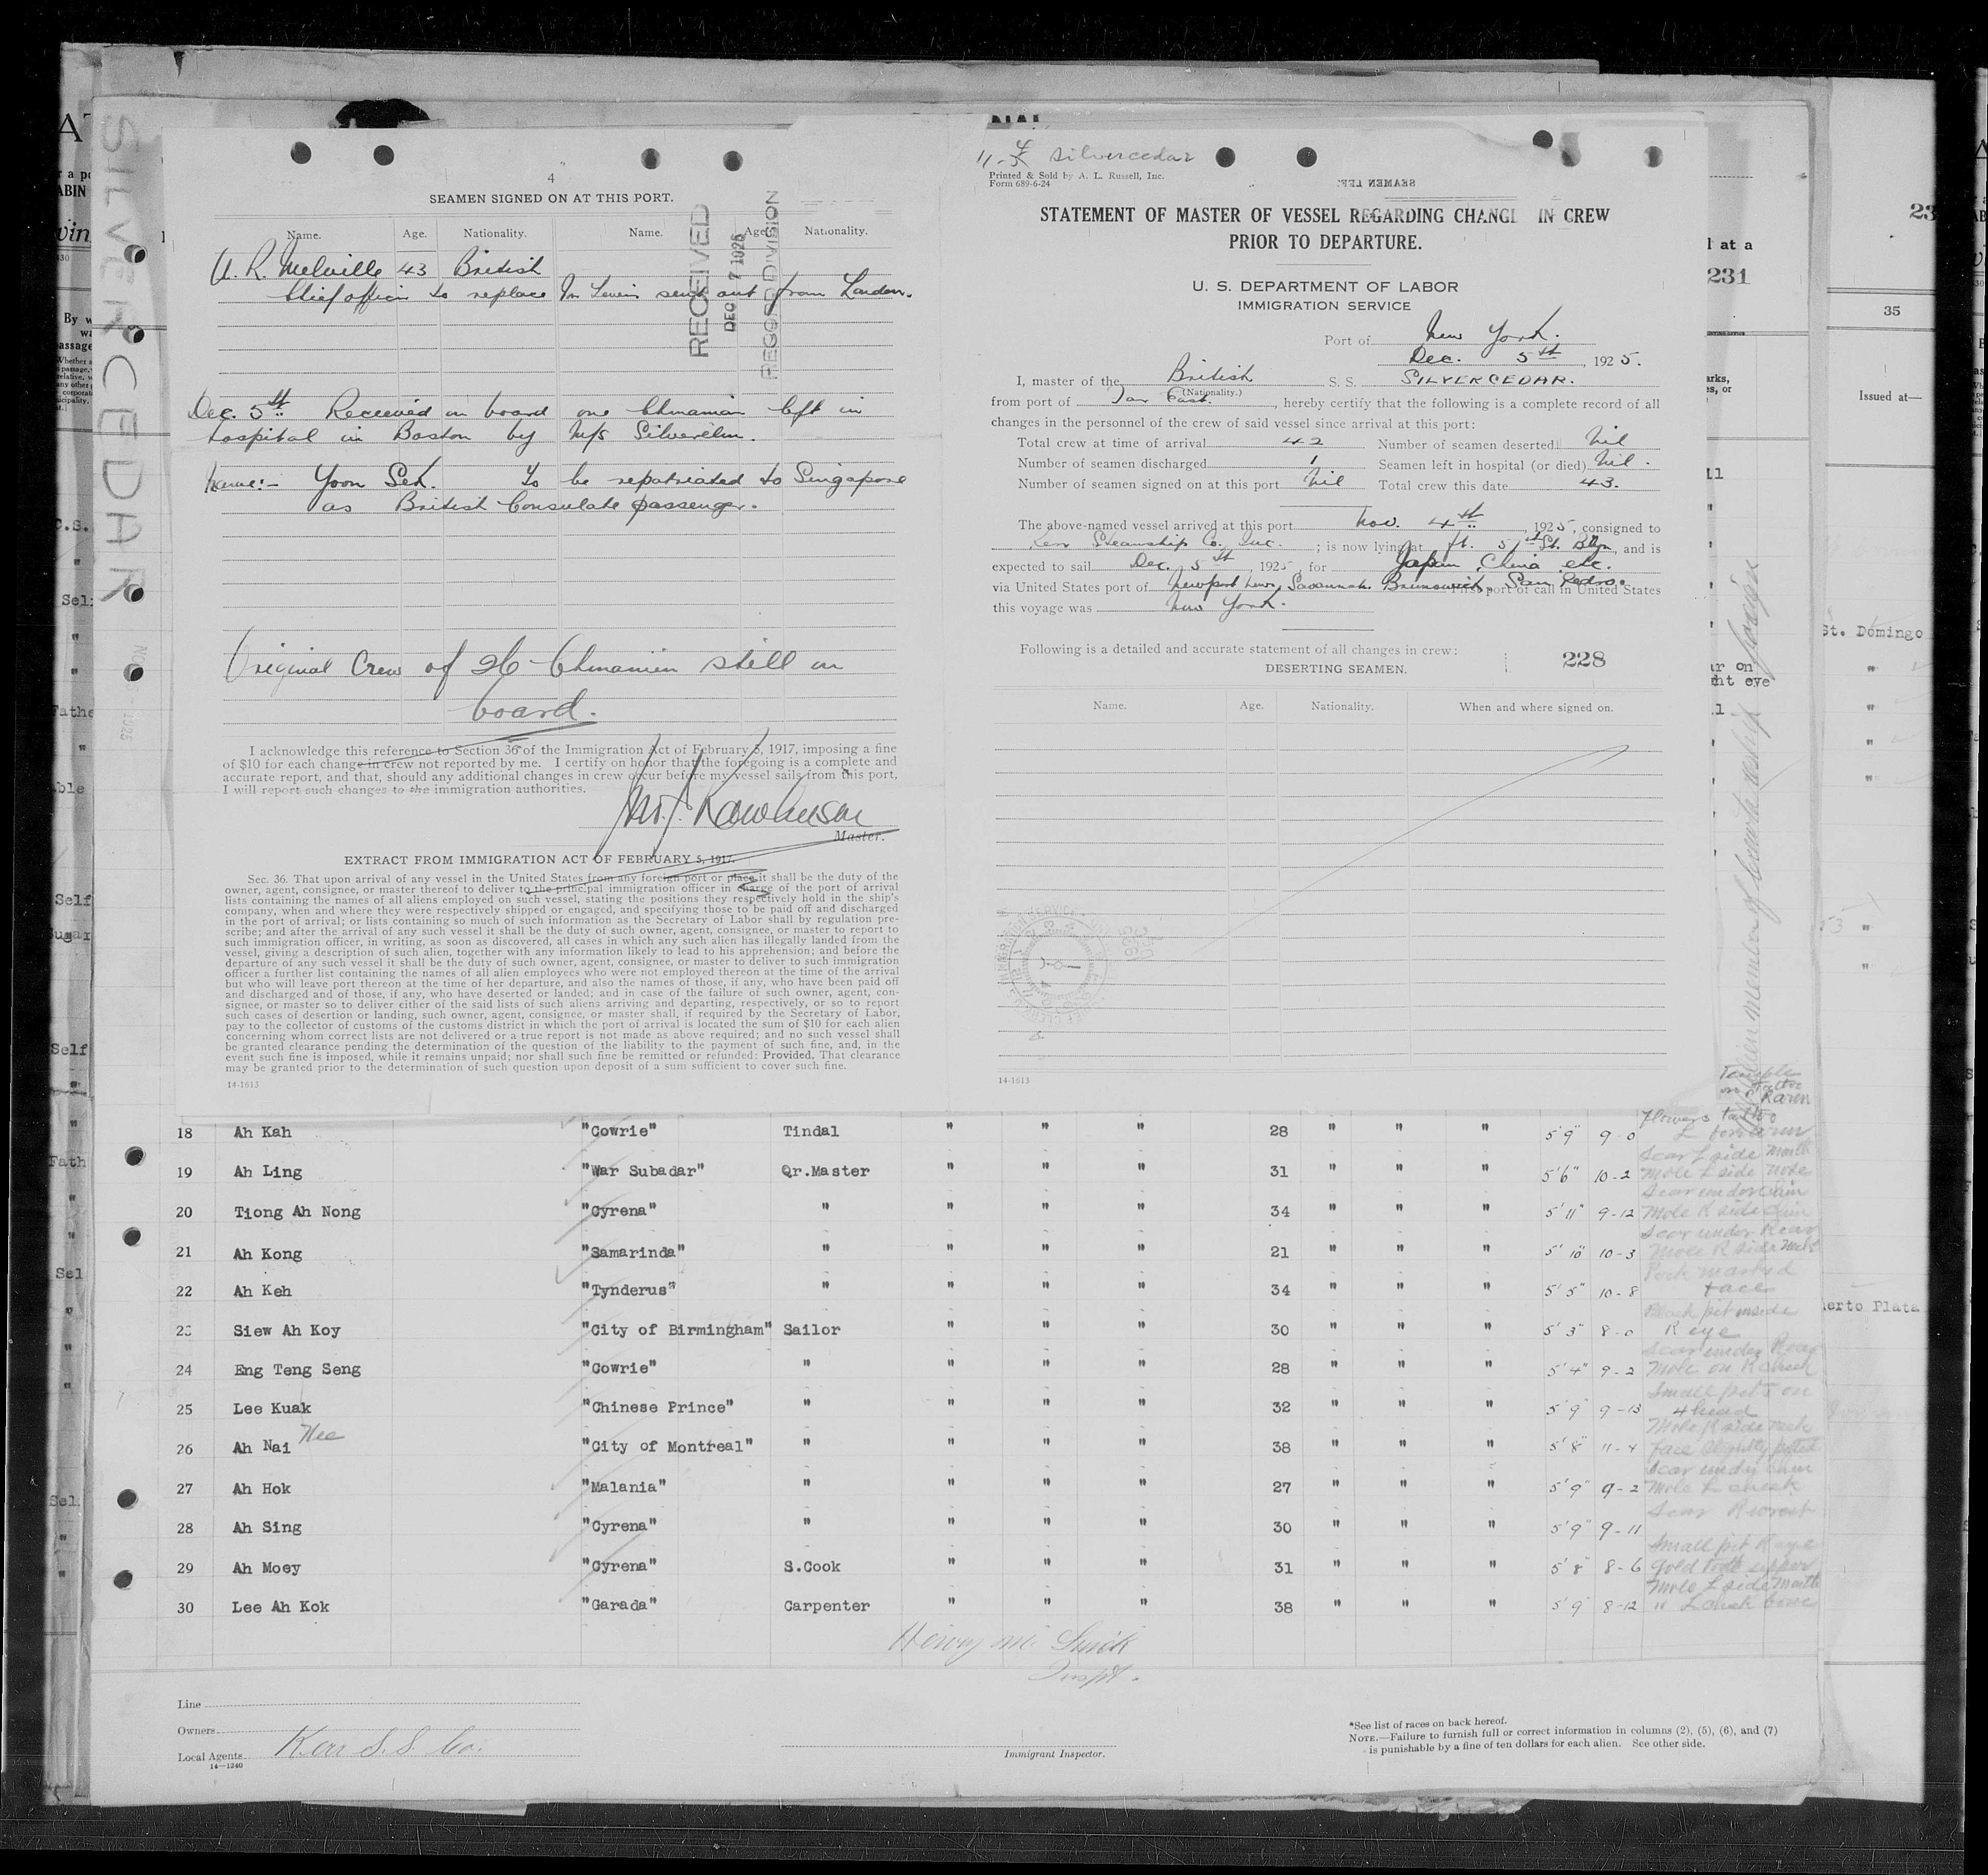 SILVERCEDAR
4
SEAMEN SIGNED ON AT THIS PORT.
Name. Age. Nationality. Name. Age. Nationality.
A. R. Melville 43 British
Chief officer to replace Mr Lewis sent out from London.
RECEIVED
DEC 7 1925
RECORD DIVISION
Dec. 5th Received on board one Chinaman left in
hospital in Boston by M/s Silverelm.
Name:- Yoon Set. To be repatriated to Singapore
as British Consulate passenger.
Original Crew of 26 Chinamen still on
board.
I acknowledge this reference to Section 36 of the Immigration Act of February 5, 1917, imposing a fine
of $10 for each change in crew not reported by me. I certify on honor that the foregoing is a complete and
accurate report, and that, should any additional changes in crew occur before my vessel sails from this port,
I will report such changes to the immigration authorities.
Rawlinson
Master.
EXTRACT FROM IMMIGRATION ACT OF FEBRUARY 5, 1917.
Sec. 36. That upon arrival of any vessel in the United States from any foreign port or place it shall be the duty of the
owner, agent, consignee, or master thereof to deliver to the principal immigration officer in charge of the port of arrival
lists containing the names of all aliens employed on such vessel, stating the positions they respectively hold in the ship's
company, when and where they were respectively shipped or engaged, and specifying those to be paid off and discharged
in the port of arrival; or lists containing so much of such information as the Secretary of Labor shall by regulation pre-
scribe; and after the arrival of any such vessel it shall be the duty of such owner, agent, consignee, or master to report to
such immigration officer, in writing, as soon as discovered, all cases in which any such alien has illegally landed from the
vessel, giving a description of such alien, together with any information likely to lead to his apprehension; and before the
departure of any such vessel it shall be the duty of such owner, agent, consignee, or master to deliver to such immigration
officer a further list containing the names of all alien employees who were not employed thereon at the time of the arrival
but who will leave port thereon at the time of her departure, and also the names of those, if any, who have been paid off
and discharged and of those, if any, who have deserted or landed; and in case of the failure of such owner, agent, con-
signee, or master so to deliver either of the said lists of such aliens arriving and departing, respectively, or so to report
such cases of desertion or landing, such owner, agent, consignee, or master shall, if required by the Secretary of Labor,
pay to the collector of customs of the customs district in which the port of arrival is located the sum of $10 for each alien
concerning whom correct lists are not delivered or a true report is not made as above required; and no such vessel shall
be granted clearance pending the determination of the question of the liability to the payment of such fine, and, in the
event such fine is imposed, while it remains unpaid; nor shall such fine be remitted or refunded: Provided, That clearance
may be granted prior to the determination of such question upon deposit of a sum sufficient to cover such fine.
14-1613
Silvercedar
Printed & Sold by A. L. Russell, Inc.
Form 689-6-24
SEAMEN LEFT
STATEMENT OF MASTER OF VESSEL REGARDING CHANGE IN CREW
PRIOR TO DEPARTURE.
U. S. DEPARTMENT OF LABOR
IMMIGRATION SERVICE
Port of New York.
Dec. 5th, 1925.
I, master of the British S. S. SILVERCEDAR.
(Nationality.)
from port of Far East., hereby certify that the following is a complete record of all
changes in the personnel of the crew of said vessel since arrival at this port:
Total crew at time of arrival 42 Number of seamen deserted Nil
Number of seamen discharged 1 Seamen left in hospital (or died) Nil.
Number of seamen signed on at this port Nil Total crew this date 43.
The above-named vessel arrived at this port Nov. 4th, 1925, consigned to
Kerr Steamship Co. Inc.; is now lying at ft. 51st St. Blyn, and is
expected to sail Dec. 5th, 1925, for Japan, China etc.
via United States port of Newport News, Savannah. Brunswick, San Pedro. First port of call in United States
this voyage was New York.
Following is a detailed and accurate statement of all changes in crew: 228
DESERTING SEAMEN.
Name. Age. Nationality. When and where signed on.
14-1613
231
35
Issued at—
St. Domingo
18 Ah Kah "Cowrie" Tindal " " " 28 " " " 5'9" 9-0 Flowers tattoo L forearm
19 Ah Ling "War Subadar" Qr.Master " " " 31 " " " 5'6" 10-2 Scar L side mouth Mole L side nose
20 Tiong Ah Nong "Cyrena" " " " " 34 " " " 5'11" 9-12 Scar under chin Mole R side chin
21 Ah Kong "Samarinda" " " " " 21 " " " 5'10" 10-3 Scar under R ear Mole R side
22 Ah Keh "Tynderus" " " " " 34 " " " 5'5" 10-8 Pock marked face
23 Siew Ah Koy "City of Birmingham" Sailor " " " 30 " " " 5'3" 8-0 R eye
24 Eng Teng Seng "Cowrie" " " " " 28 " " " 5'4" 9-2 Scar under R ear Mole on R cheek
25 Lee Kuak "Chinese Prince" " " " " 32 " " " 5'9" 9-13 Small pits on 4head
26 Ah Nai Hee "City of Montreal" " " " " 38 " " " 5'8" 11-4 Mole R side neck Face slightly pitted
27 Ah Hok "Malania" " " " " 27 " " " 5'9" 9-2 Scar under chin Mole L cheek
28 Ah Sing "Cyrena" " " " " 30 " " " 5'9" 9-11 Scar R
29 Ah Moey "Cyrena" S.Cook " " " 31 " " " 5'8" 8-6 Small pit R eye Gold tooth upper
30 Lee Ah Kok "Garada" Carpenter " " " 38 " " " 5'9" 8-12 Mole L side mouth " L cheek bone
Henry M. Smith
Inspt.
Line
Owners
Local Agents Kerr S.S. Co.
14—1240
Immigrant Inspector.
*See list of races on back hereof.
NOTE.—Failure to furnish full or correct information in columns (2), (5), (6), and (7)
is punishable by a fine of ten dollars for each alien. See other side.